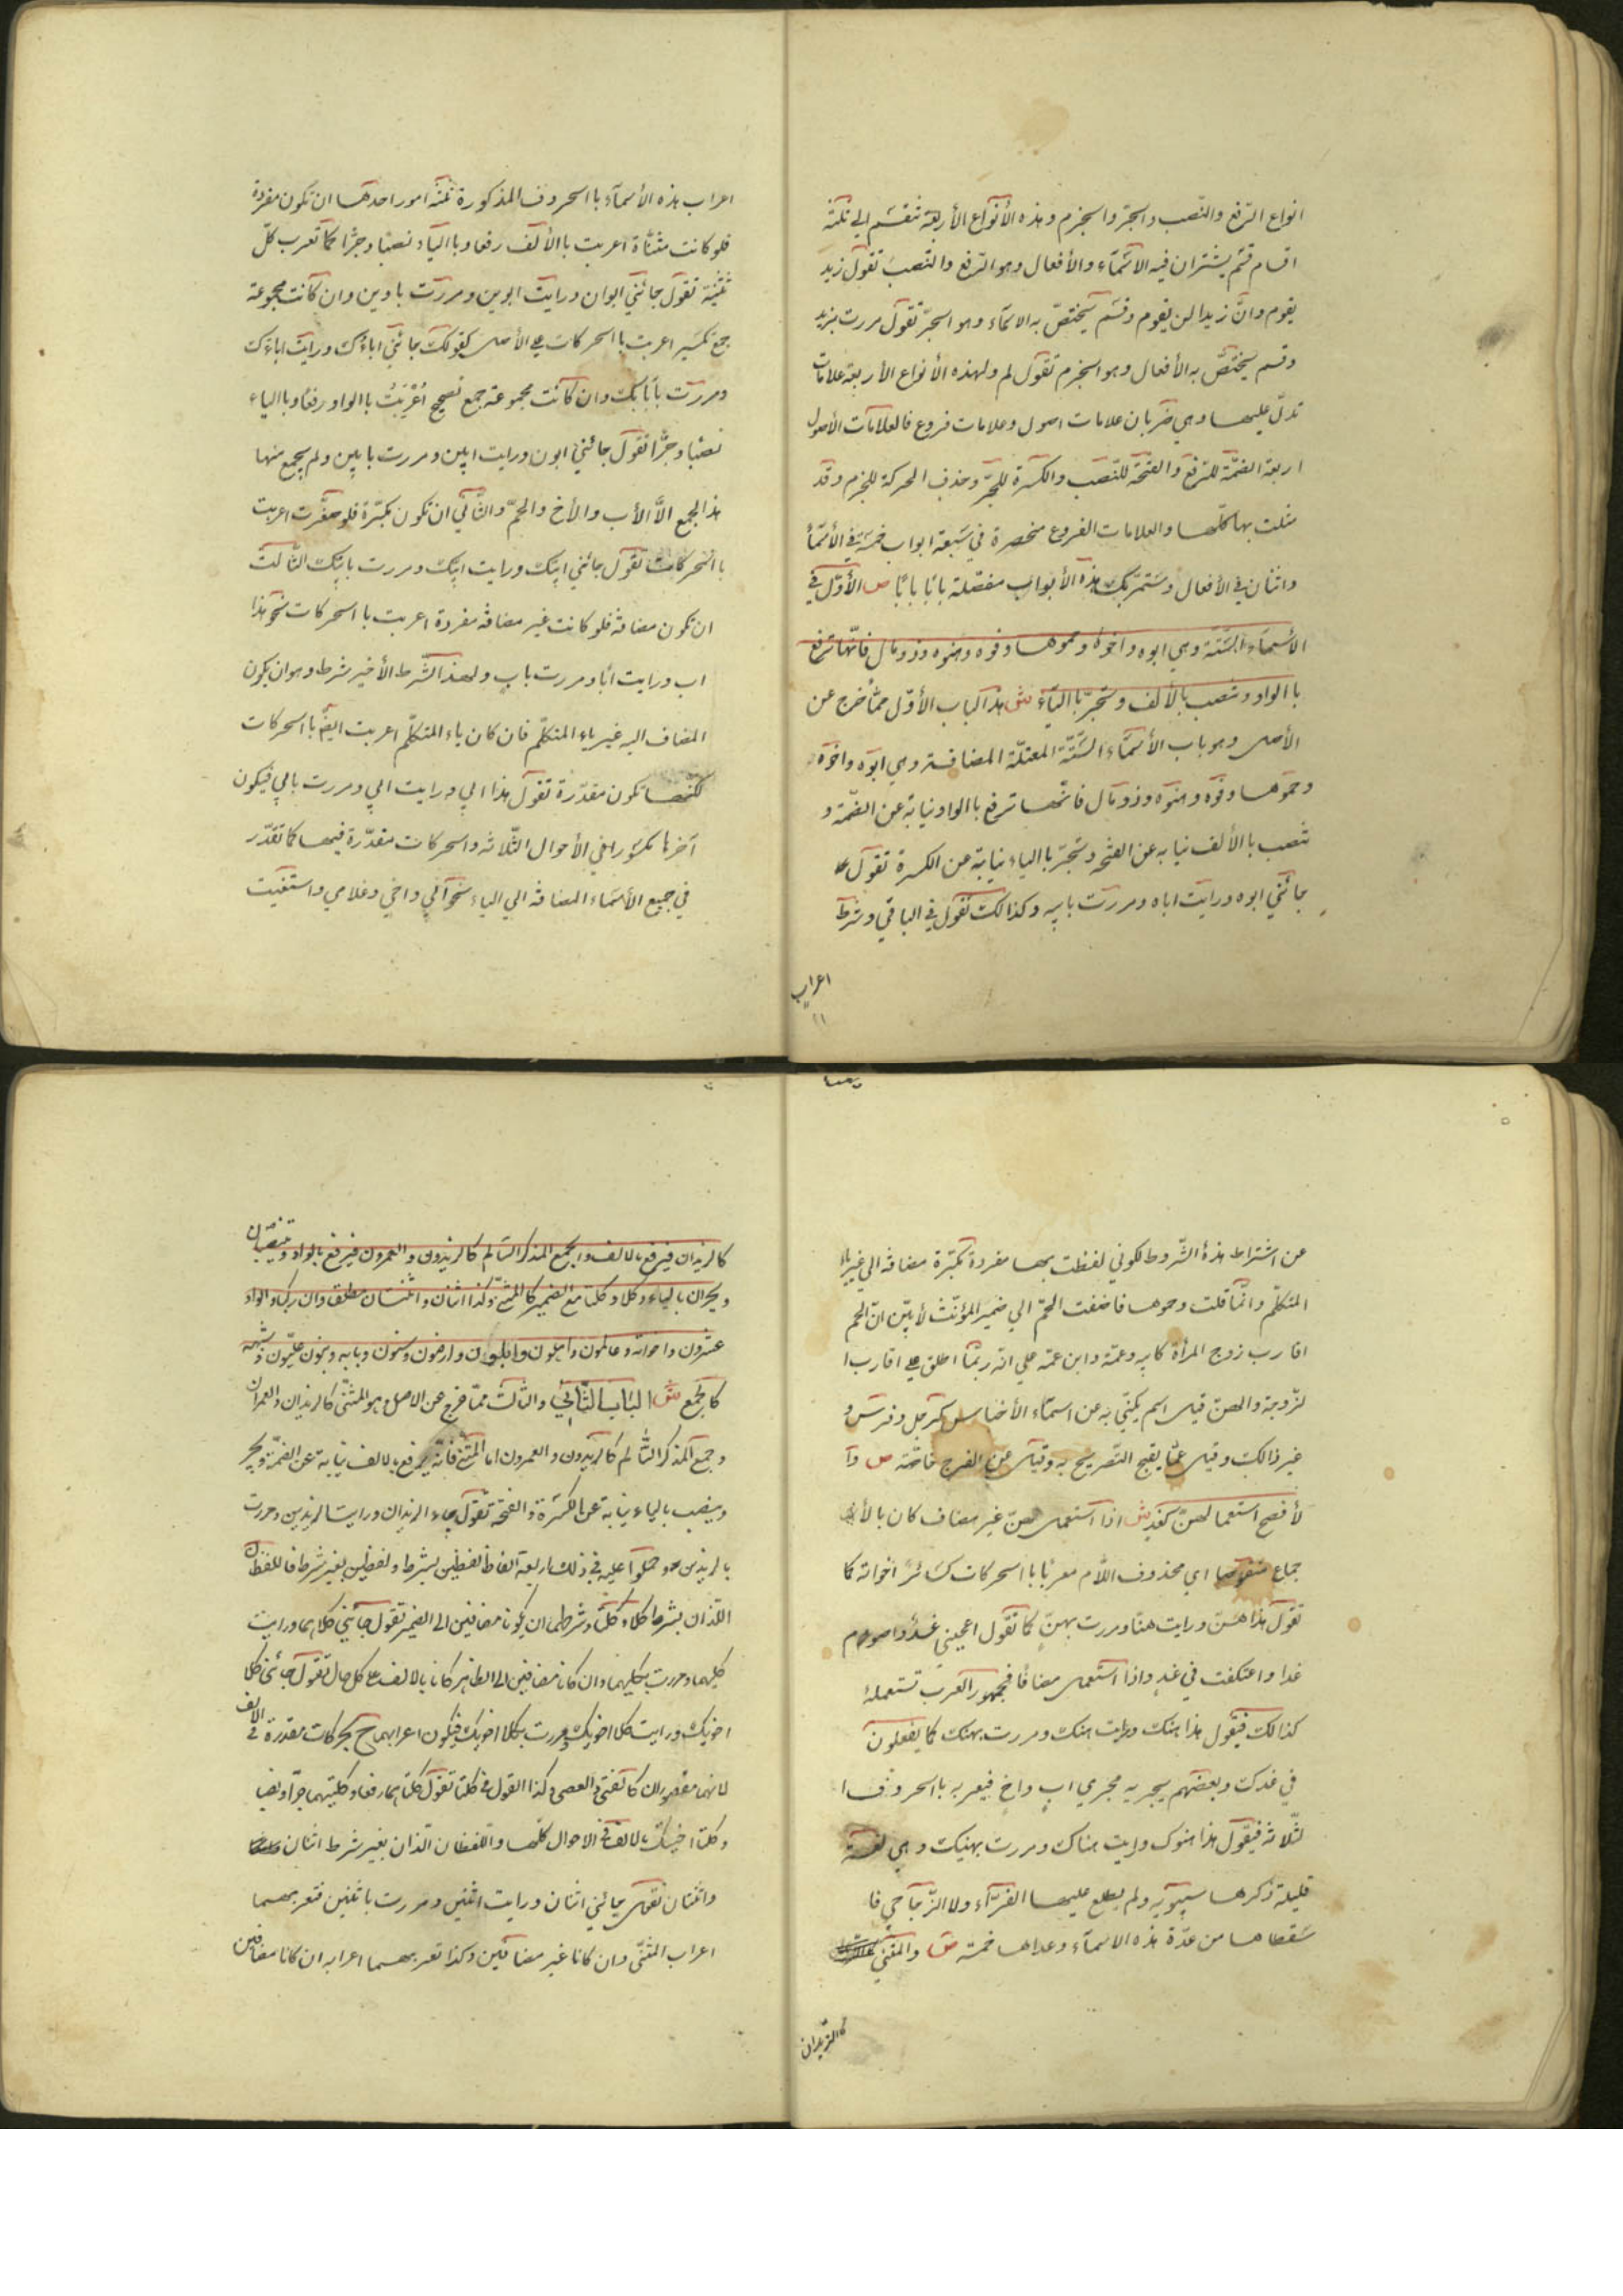 انواع الرّفع والنّصب والجرّ والجزم وهذه الأنواع الأربعة تنقسم الي ثلثة
اقسام قسم يشتران فيه الاسمآء والأفعال وهو الرّفع والنّصب تقول زيد
يقوم وانّ زيدا لن يقوم وقسم يختصّ به الاسمآء وهو الجرّ تقول مررت بزيد
وقسم يختصّ به الأفعال وهو الجزم تقول لم ولهذه الأنواع الأربعة علامات
تدلّ عليها وهي ضربان علامات اصول وعلامات فروع فالعلامات الأصول
اربعة الضمّة للرّفع والفتحة للنّصب والكسرة للجرّ وحذف الحركة للجزم وقد
مثلت بها كلّها والعلامات الفروع منحصرة في سبعة ابواب خمسة في الأسمآء
واثنان في الأفعال وستمرّ بك هذه الأبواب مفصّلة بابًا بابًا ص الأوّل في
الأسمآء السّتّة وهي ابوه واخوه وحموها وفوه وهنوه وذو مال فانّها ترفع
باالواو وتنصب بالألف وتجرّ باالياء ش هذا الباب الأوّل ممّا خرج عن
الأصل وهو باب الأسمآء السّتّة المعتلّة المضافة وهي ابوه واخوه
وحموها وفوه وهنوه وذو مال فانّها ترفع باالواو نيابة عن الضّمّة و
تنصب باالألف نيابه عن الفتحه وتجرّ باالياء نيابة عن الكسرة تقول
جائني ابوه ورايت اباه ومررت بابيه وكذالك تقول في الباقي وشرط
اعراب
١١
اعراب هذه الأسمآء باالحروف المذكورة ثلثة امور احدها ان تكون مفردة
فلو كانت مثنّاة اعربت باالألف رفعا وباالياء نصبًا وجرًّا كما تعرب كلّ
تثنية تقول جائني ابوان ورايت ابوين ومررت بابوين وان كانت مجموعة
جمع تكسير اعربت باالحركات علي الأصل كقولك جائني اباؤك ورايت اباءك
ومررت بابائك وان كانت مجموعة جمع تصحيح اُعْرِبَتْ باالواو رفعًا وباالياء
نصبًا وجرًّا تقول جائني ابون ورايت ابين ومررت بابين ولم يجمع منها
هذالجمع الاَّ الأب والأخ والحمّ والثّاني ان تكون مكبّرة فلو صغّرت اعربت
باالحركات تقول جائني ابيّك ورايت ابيّك ومررت بابيّك الثّالث
ان تكون مضافة فلو كانت غير مضافة مفردة اعربت باالحركات نحو هذا
اب ورايت أبا ومررت باب ولهذالشّرط الأخير شرط وهو ان يكون
المضاف اليه غير ياء المتكلّم فان كان ياء المتكلّم اعربت ايضًا باالحركات
لكنّها تكون مقدّرة تقول هذا ابي ورايت ابي ومررت بابي فيكون
آخرها مكسورا في الأحوال الثّلاثه والحركات مقدّرة فيها كما تقدّر
في جميع الأسماء المضافة الي الياء نحو ابي واخي وغلامي واستغنيت
عن اشتراط هذه الشّروط لكوني لفظت بها مفردة مكبّرة مضافة الي غير ياء
المتكلّم وانّما قلت وحموها فاضفت الحمّ الي ضمير المؤنّث لأبيّن انّ الحم
اقارب زوج المرأة كابيه وعمّه وابن عمّه علي انّه ربّما اطلق علي اقارب ا
لزّوجة والهن قيل اسم يكنّي به عن اسمآء الأجناس كرجل وفرس و
غير ذالك وقيل عمّا يقبح التّصريح به وقيل عن الفرج خاصّة ص وا
لأفصح استعمال هن كغد ش اذا استعمل هن غير مضاف كان بالأ
جماع منقوصا اي محذوف اللّام معربًا باالحركات كسائر اخواته كما
تقول هذا هن ورايت هنًا ومررت بهنٍ كما تقول اعجبني غدٌ واصوم
غدا واعتكفت في غدٍ واذا استعمل مضافا فجمهور العرب تستعمله
كذالك فيقول هذا هنك ورايت هنك ومررت بهنك كما يفعلون
في غدك وبعضهم يجريه مجري ابٍ واخٍ فيعربه باالحروف ا
لثّلاثه فيقول هذا هنوك ورايت هناك ومررت بهنيك وهي لغة
قليلة ذكرها سيبويه ولم يطلع عليها الفرّآء ولا الزّجاجي فا
سقطاها من عدّة هذه الاسمآء وعدّاها خمسة ص والمثنّي
كالزّيدان
كالزيدان فيرفع بالالف والجمع المذكر السّالم كالزيدون والعمرون فيرفع بالواو وينصبان
ويجران بالياء وكلا وكلتا مع الضمير كالمثنّي وكذا اثنان واثنتان مطلقا وان ركبا واولو
عشرون واخواته وعالمون واهلون وابلون وارضون وسنون وبابه وبنون عليّون وشبهه
كالجمع ش الباب الثّاني والثالث ممّا خرج عن الاصل وهو المثنّي كالزيدان والعمران
وجمع المذكر السّالم كالزيدون والعمرون اما المثنّي فانّه يرفع بالالف نيابة عن الضمّة ويجر
وينصب بالياء نيابة عن الكسرة والفتحة تقول جاء الزيدان ورايت الزيدين ومررت
بالزيدين وحملوا عليه في ذلك اربعة الفاظ لفظين بشرط ولفظين بغير شرط فاللفظان
اللّذان بشرط كلا وكلتا وشرطهما ان يكونا مضافين الي الضمير تقول جآئني كلاهما ورايت
كليهما ومررت بكليهما وان كانا مضافين الي الظاهر كانا بالالف علي كل حال تقول جائني كلا
اخويك ورايت كلا اخويك ومررت بكلا اخويك فيكون اعرابهما ح بحركات مقدرة في الالف
لانهما مقصوران كالفتي والعصي وكذا القول في كلتا تقول كلتاهما رفعا وكلتيهما جرّا ونصبا
وكلتا اختيك بالالف في الاحوال كلّها واللفظان اللّذان بغير شرط اثنان
واثنتان تقول جائني اثنان ورايت اثنين ومررت باثنين فتعربهما
اعراب المثنّي وان كانا غير مضافين وكذا تعربهما اعرابه ان كانا مضافين